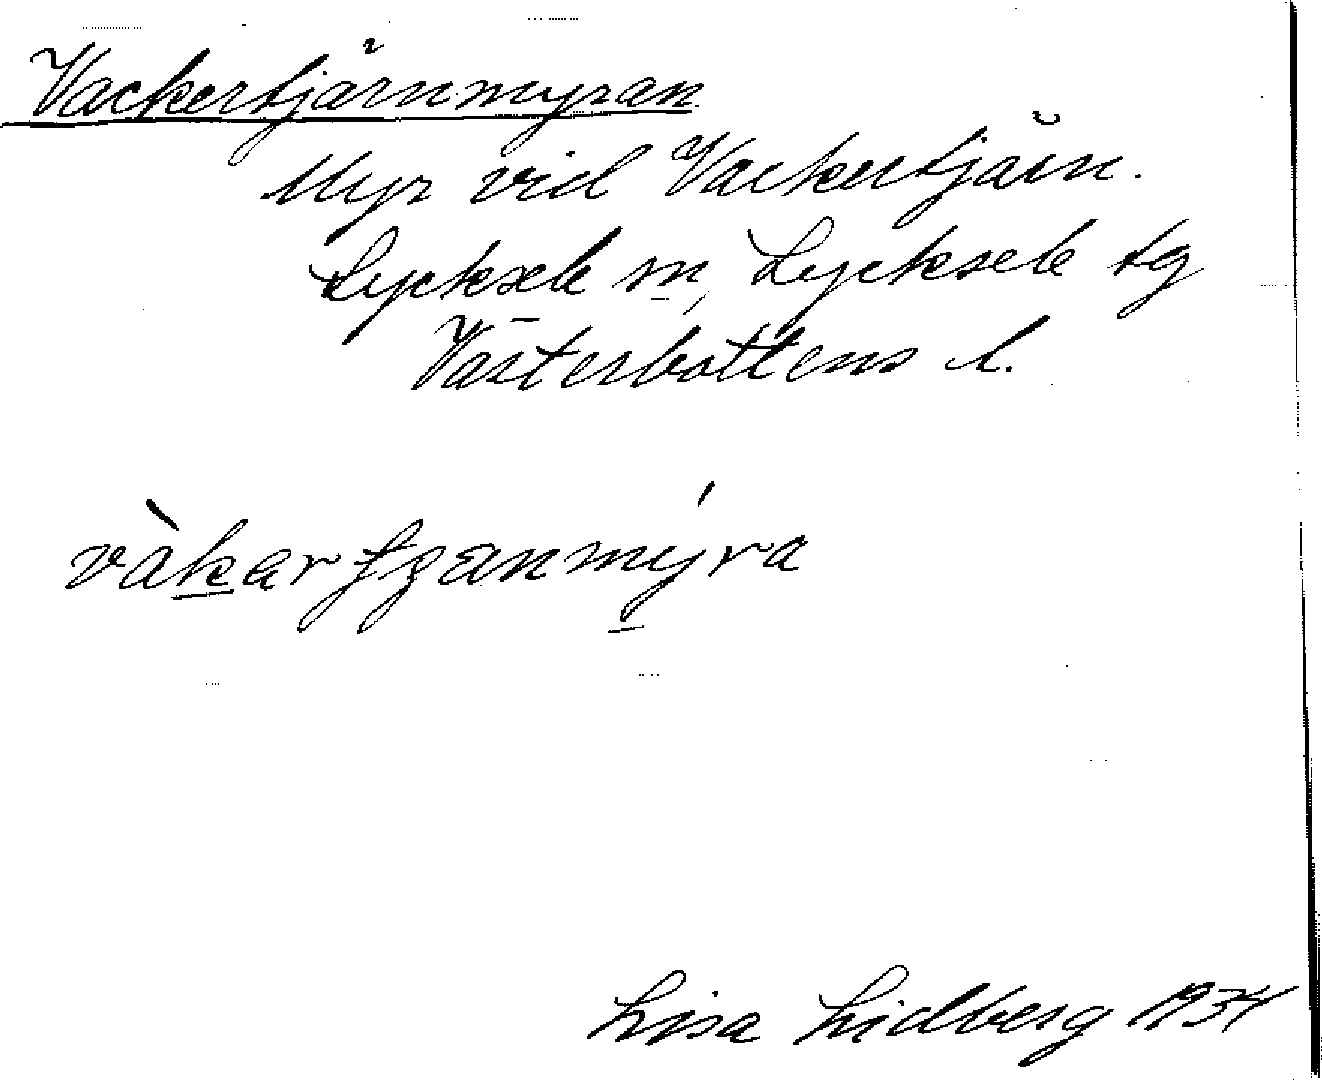 Vackertjärnmyran
Myr vid Vackertjärn.
Lycksele m, Lycksele tg
Västerbottens l.
Lisa Lidberg 1934